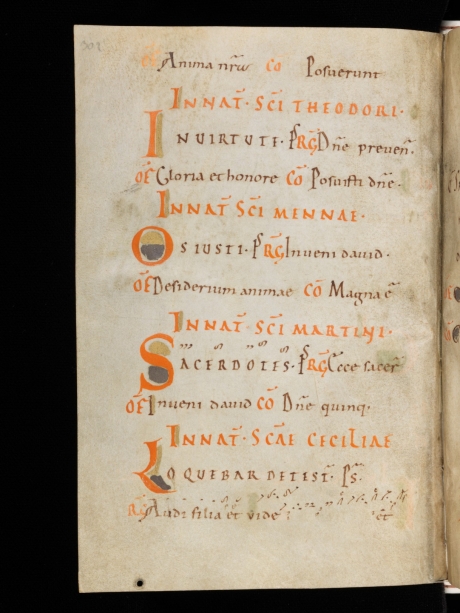 Anima nr̄a CŌ Posuerunt
IN NAT̄. SC̄I THEODORI.
IN UIRTUTE. Ps̄. RḠ Dn̄e preven̄.
OF̄ Gloria et honore CŌ Posuisti dn̄e.
IN NAT̄ SC̄I MENNAE.
OS IUSTI. Ps̄. RḠ Inveni david.
OF̄ Desiderium animae CŌ Magna ē
IN NAT̄ SC̄I MARTINI.
SACERDOTES. Ps̄. RḠ Ecce sacer̄
OF̄ Inveni david CŌ Dn̄e quinq.
IN NAT̄. SCAE CECILIAE
LOQUEBAR DE TEST̄. Ps̄.
RḠ Audi filia et vide et